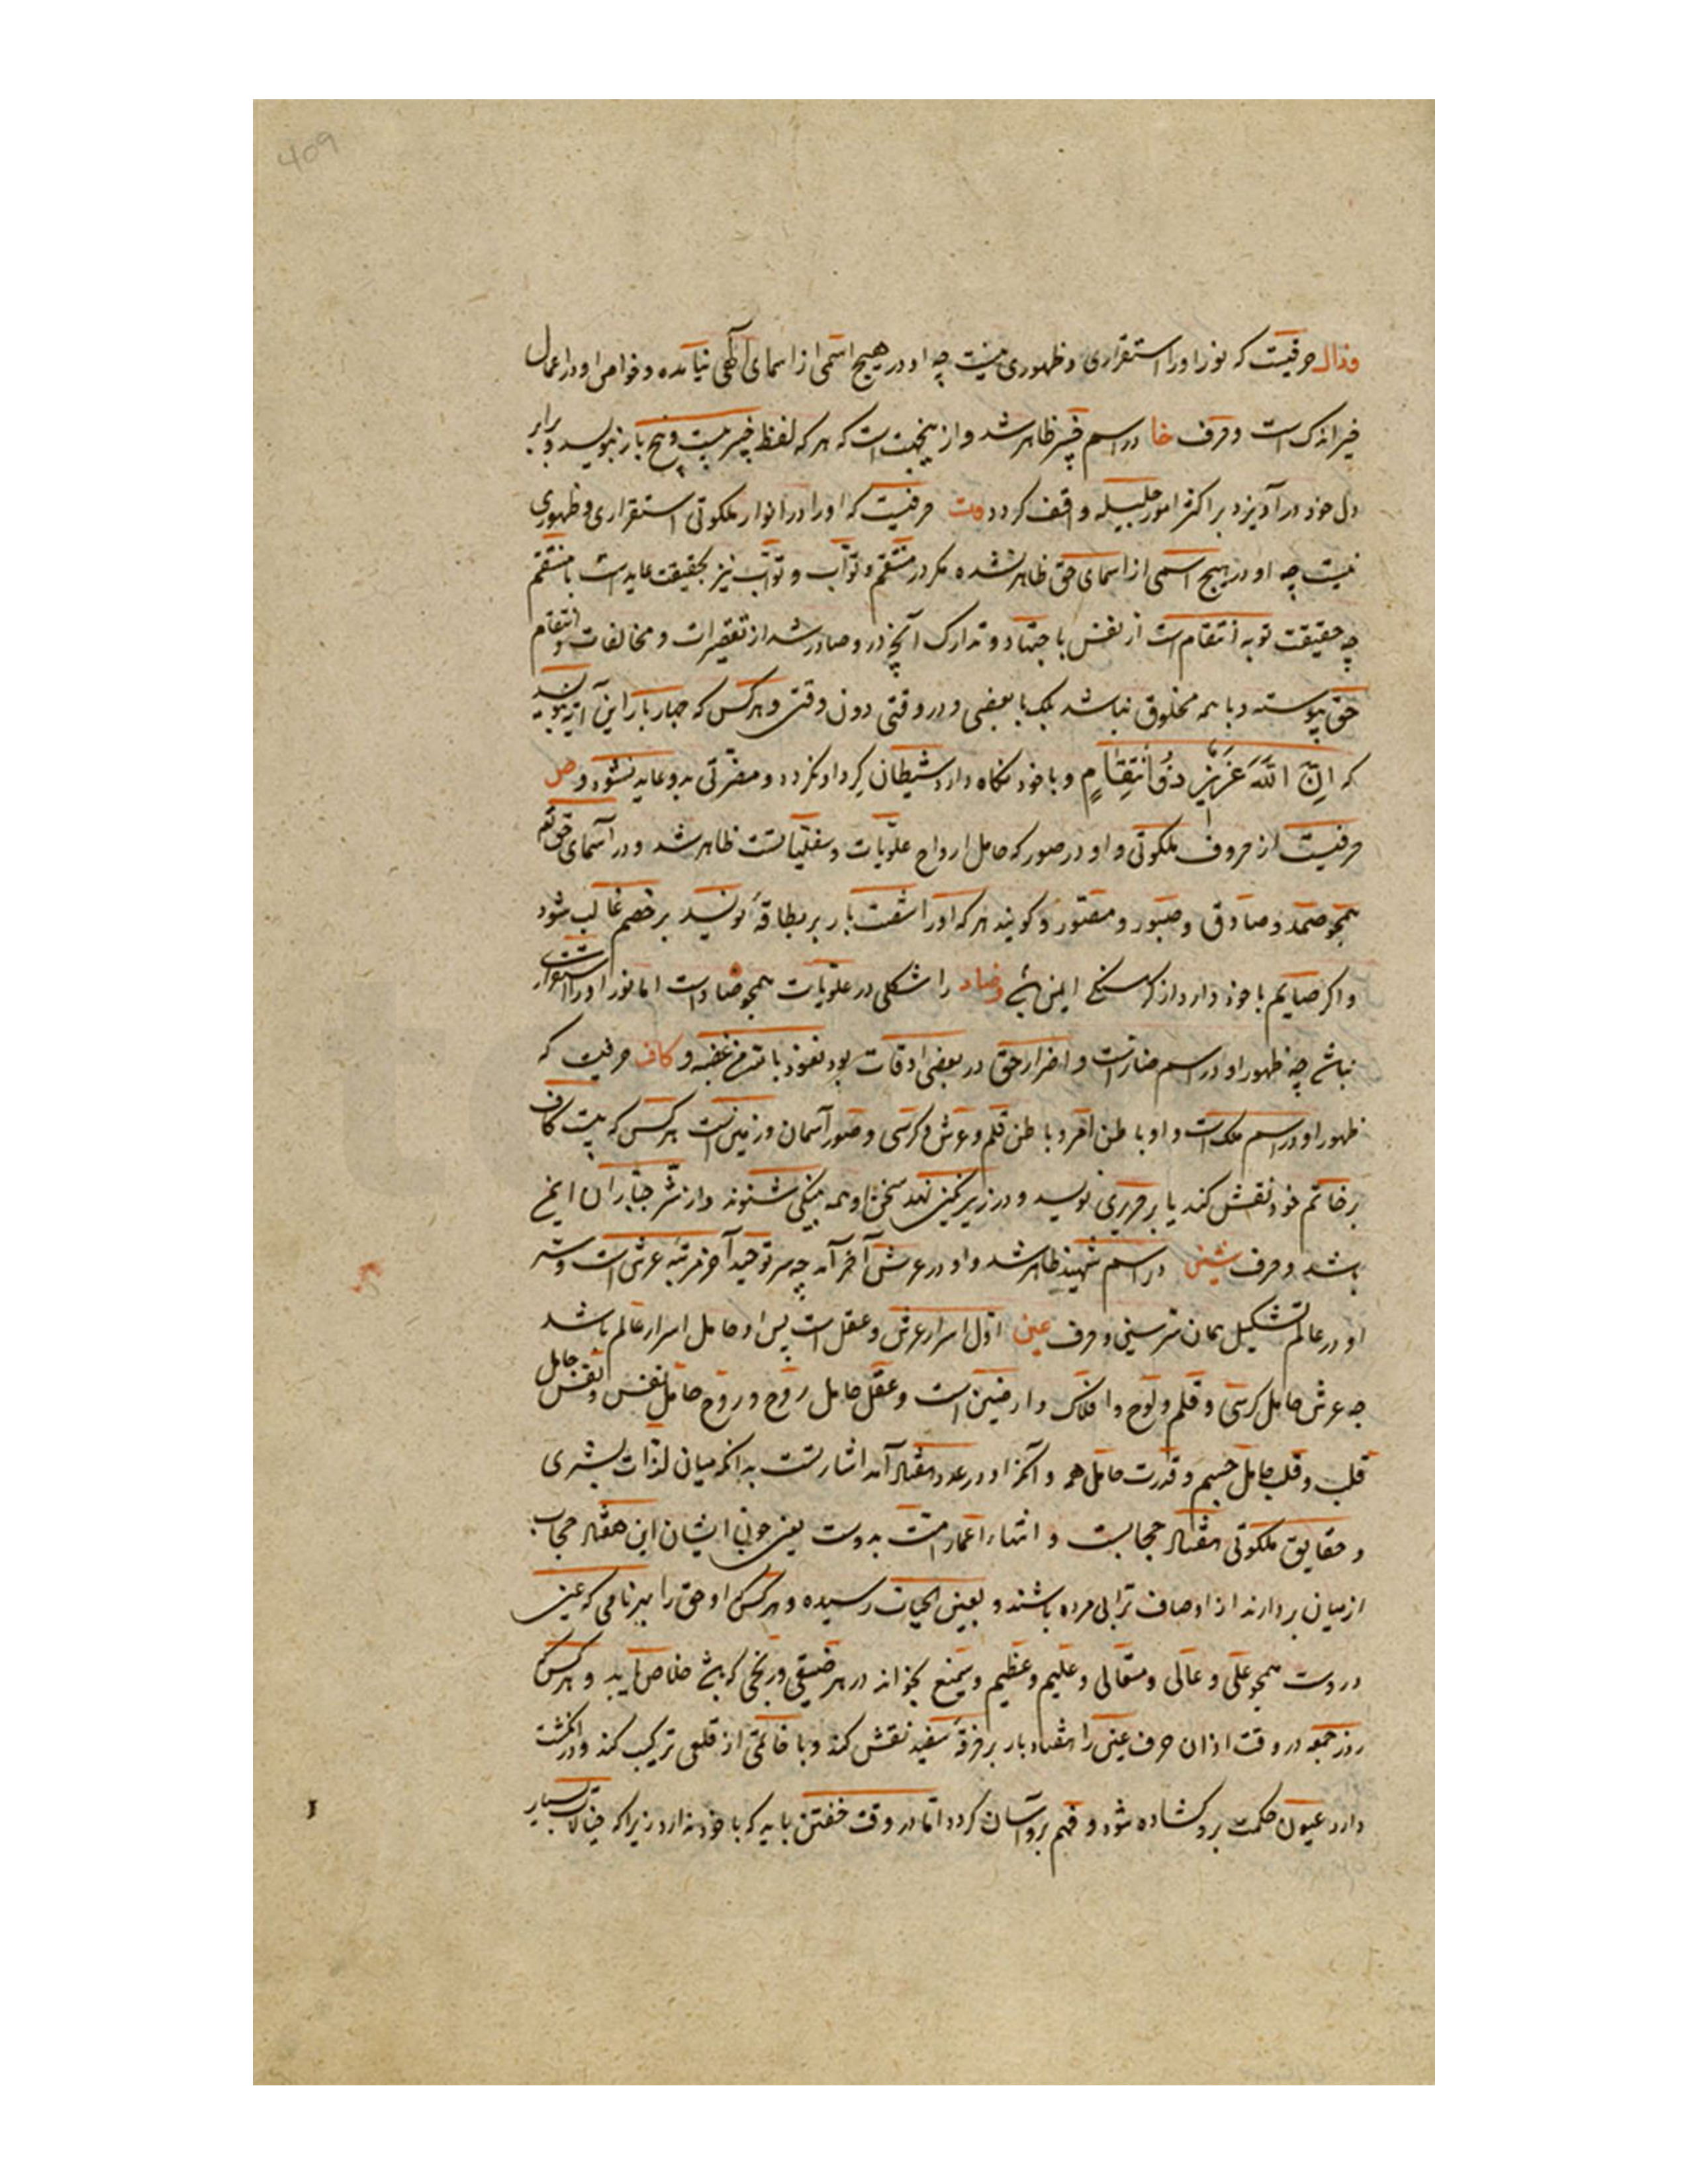 409
وذال حرفیست که نور او را استقراری و ظهوری نیست چه او در هیچ اسمی از اسمای الهی نیامده و خواص او در اعمال
خیر اندک است و حرف خا در اسم خبیر ظاهر شد و ازینجهت است که هر که لفظ خبیر بیست و پنج بار بنویسد و برابر
دل خود در آویزد بر اکثر امور جلیله واقف کردد و ت حرفیست که او را در انوار ملکوتی استقراری و ظهوری
نیست چه او در هیچ اسمی از اسمای حق ظاهر نشده مکر در منتقم و تواب و تواب نیز بحقیقت عایدست با منتقم
چه حقیقت توبه انتقام است از نفس باجتهاد و تدارک آنچه در و صادر شد از تقصیرات و مخالفات و انتقام
حق پیوسته و با همه مخلوق نباشد بلک با بعضی و در وقتی دون وقتی و هر کس که چهار بار این آیه بنویسد
که اِنَّ اللّهَ عَزِیزٌ ذُو انتِقَامٍ و با خود نکاه دارد شیطان کرد او نکردد و مضرتی بدو عاید نشود و ص
حرفیست از حروف ملکوتی و او در صور که حامل ارواح علویات و سفلیاتست ظاهر شد و در اسمای حق تع
همچو صمد و صادق و صبور و مصور و کویند هر که او را شصت بار بر بطاقه نویسد بر خصم غالب شود
و اکر صایم با خود دارد از کرسنکی ایمن باشد و ضاد را شکلی در علویات همچو صادست اما نور او را استقرار
نباشد چه ظهور او در اسم ضارست و اضرار حق در بعضی اوقات بود نعوذ بالله من غضبه و کاف حرفیست که
ظهور او در اسم ملک است و او باطن امر و باطن قلم و عرش و کرسی و صور آسمان و زمین است هر کس که بیست کاف
بر خاتم خود نقش کند یا بر حریری نویسد و در زیر نکین نهد سخن او همه بنیکی شنوند و از شر جباران ایمن
باشد و حرف شین در اسم شهید ظاهر شد و او در عرش آخر آمد چه سر توحید آخر مرتبه عرش است و سر
او در عالم تشکیل همان سر سینی و حرف عین اول اسرار عرش و عقل است پس او حامل اسرار عالم باشد
چه عرش حامل کرسی و قلم و لوح و افلاک و ارضین است و عقل حامل روح و روح حامل نفس و نفس حامل
قلب و قلب حامل جسم و قدرت حامل همه و آنکه او در عدد هفتاد آمد اشارتست بدانکه میان لذات بشری
و حقایق ملکوتی هفتاد حجابست و انتهاء اعمار امت بدوست یعنی چون ایشان این هفتاد حجاب
از میان بردارند از اوصاف ترابی مرده باشند و بعین الحیات رسیده و هر کس او حق را بهر نامی که عین
دروست همچو علی و عالی و متعالی و علیم و عظیم و سمیع بخواند در هر ضیقی و رنجی که باشد خلاص یابد و هر کس
روز جمعه در وقت اذان حرف عین را هفتاد بار بر خرقه سفید نقش کند و با خاتمی از قلعی ترکیب کند و در انکشت
دارد عیون حکمت برو کشاده شود و فهم برو آسان کردد اما در وقت خفتن باید که با خود ندارد زیرا که خیالات بسیار